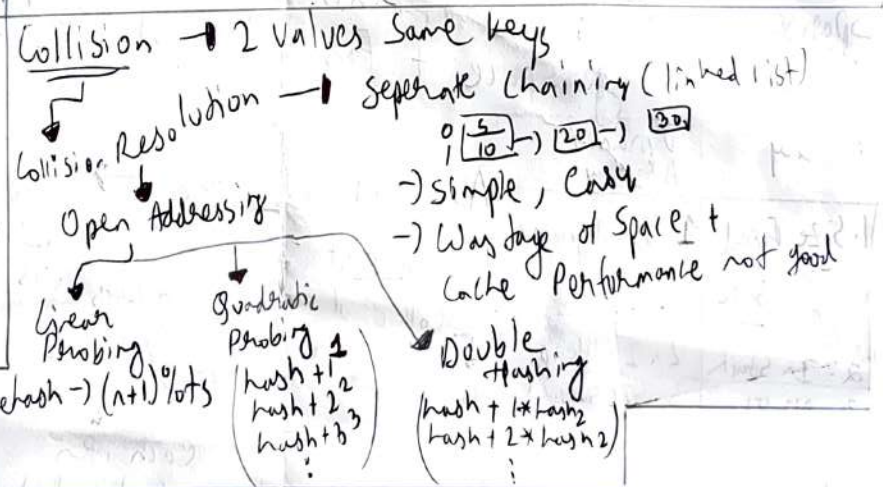 Collision → 2 values Same keys
Collision Resolution → Seperate Chaining (linked list)
0 5
1 10 → 20 → 30
→ Simple, Easy
→ Wastage of Space +
Cache Performance not good
Open Addressing
Linear
Probing
rehash → (n+1)%ts
Quadratic
Probing
hash + 1^1
hash + 2^2
hash + 3^3
⋮
Double
Hashing
hash + 1*hash2
hash + 2*hash2
⋮